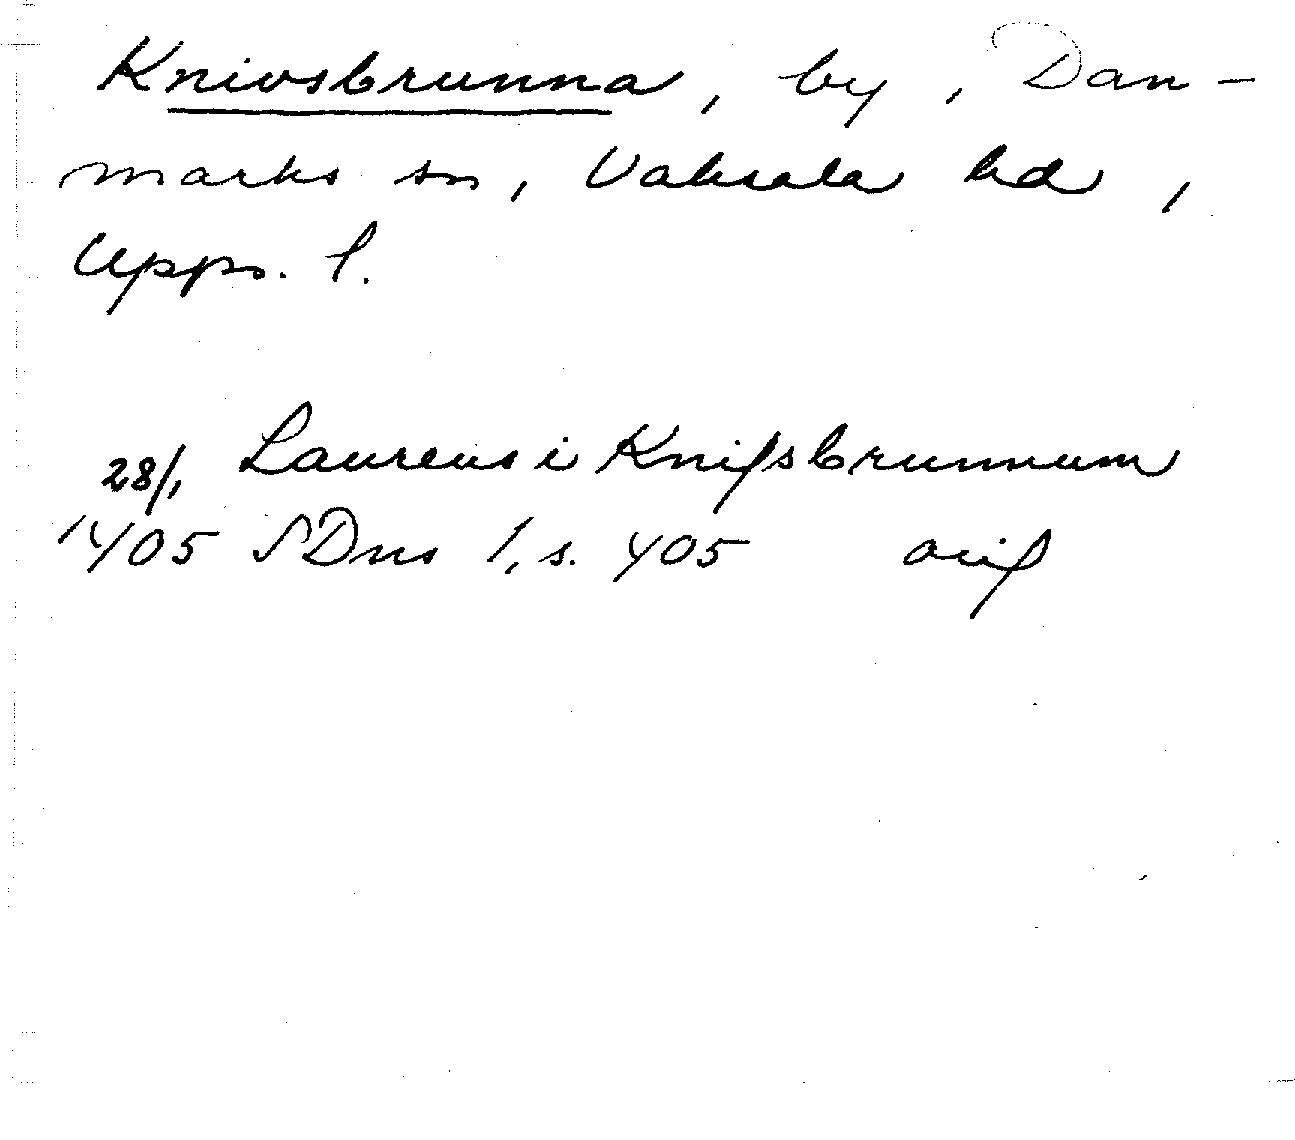 Knivsbrunna, by, Dan-
marks sn, Vaksala hd,
Upps. l.
28/1 Laurens i Knifsbrunnum
1405 SDns 1, s. 405 avs